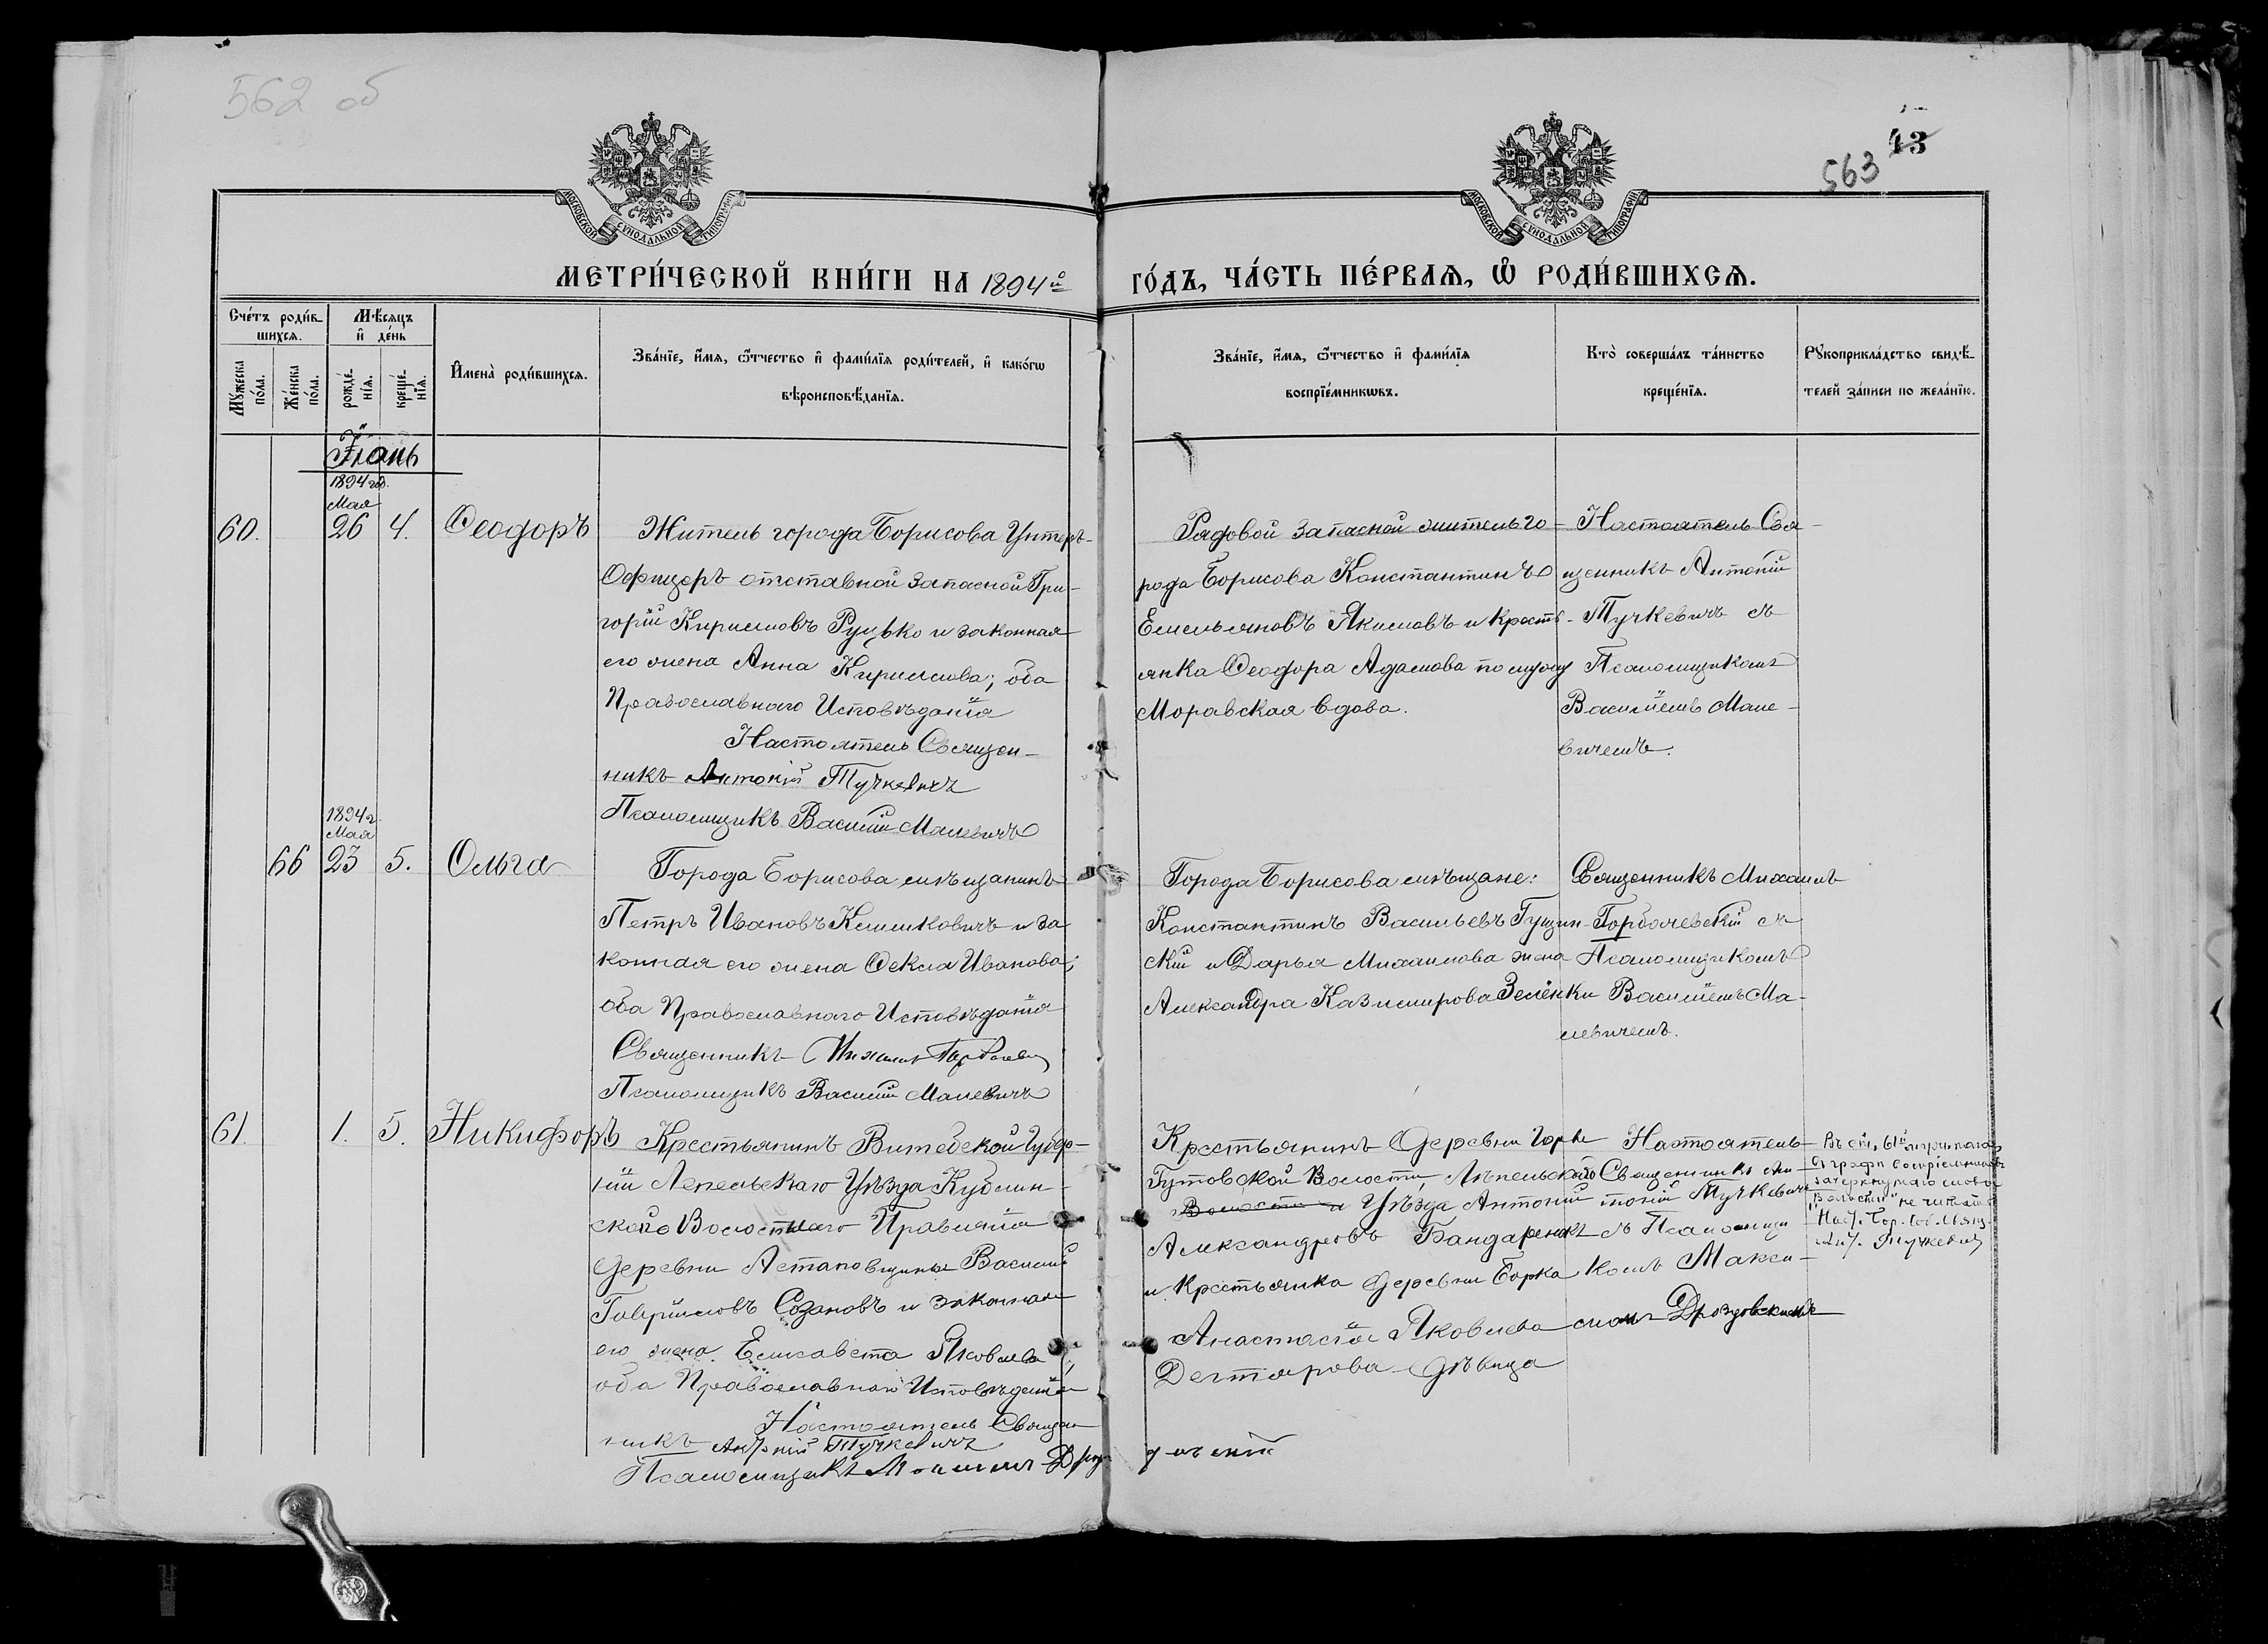 562 об
43
563
МОСКОВСКОЙ СѴНОДАЛЬНОЙ ТИПОГРАФІИ
МОСКОВСКОЙ СѴНОДАЛЬНОЙ ТИПОГРАФІИ
МЕТРИ́ЧЕСКОЙ КНИ́ГИ НА 1894й
ГО́ДЪ, ЧА́СТЬ ПЕ́РВАѦ, Ѡ РОДИ́ВШИХСѦ.
Сче́тъ роди́в-
шихсѧ.
Мꙋжеска по́ла.
Же́нска по́ла.
Мѣ́сѧцъ
и де́нь
рожде́-
нїѧ.
креще́-
нїѧ.
Имена̀ роди́вшихсѧ.
Зва́нїе, и́мѧ, ѻ́тчество и фами́лїѧ роди́телей, и како́гѡ
вѣроисповѣ́данїѧ.
Зва́нїе, и́мѧ, ѻ́тчество и фами́лїѧ
воспрїе́мникѡвъ.
Кто̀ соверша́лъ та́инство
креще́нїѧ.
Рꙋкоприкла́дство свидѣ́-
телей за́писи по жела́нїю.
Іюнь
1894 год.
Мая
60. 26 4. Ѳеодоръ
Житель города Борисова Унтеръ-
Офицеръ отставной запасной Гри-
горій Кириловъ Руцько и законная
его жена Анна Кирилова; оба
Православнаго Исповѣданія
Настоятель Священ-
никъ Антоній Тучкевичъ
Псаломщикъ Василій Малевичъ
Рядовой запасной житель го-
рода Борисова Константинъ
Емельяновъ Якимовъ и кресть-
янка Ѳеодора Адамова по мужу
Моравская вдова.
Настоятель Свя-
щенникъ Антоній
Тучкевичъ съ
Псаломщикомъ
Василіемъ Мале-
вичемъ.
1894 г.
Мая
66 23 5. Ольга
Города Борисова мѣщанинъ
Петръ Ивановъ Климковичъ и за
конная его жена Ѳекла Иванова;
оба Православнаго Исповѣданія
Священникъ Михаилъ
Псаломщикъ Василій Малевичъ
Города Борисова мѣщане:
Константинъ Васильевъ Гущин-
скій и Дарья Михаилова жена
Александра Казимирова Зелёнки
Священникъ Михаилъ
Горбачевскій съ
Псаломщикомъ
Василіемъ Ма-
левичемъ.
61. 1. 5. Никифоръ
Крестьянинъ Витебской Губер-
ніи Лепельскаго Уѣзда Кублин-
скаго Волостнаго Правленія
деревни Астаповщины Василій
Гавріиловъ Созановъ и законная
его жена Елисавета Яковлева;
оба Православнаго Исповѣданія
Настоятель Священ-
никъ Антоній Тучкевичъ
Псаломщикъ Дроз
довскій
Крестьянинъ деревни Горы
Гутовской Волости, Лѣпельскаго
Волости Уѣзда Антоній
Александровъ Бандаренкъ
и крестьянка деревни Борка
Анастасія Яковлева
Дегтярова дѣвица
Настоятель
Священникъ Ан-
тоній Тучкевичъ
съ Псаломщи-
комъ Макси-
момъ Дроздовскимъ
Въ ст. 61й
въ графѣ воспріемниковъ
зачеркнутаго слова
"Волости" не читать
Наст. Бор. Соб. Свящ.
Ант. Тучкевичъ